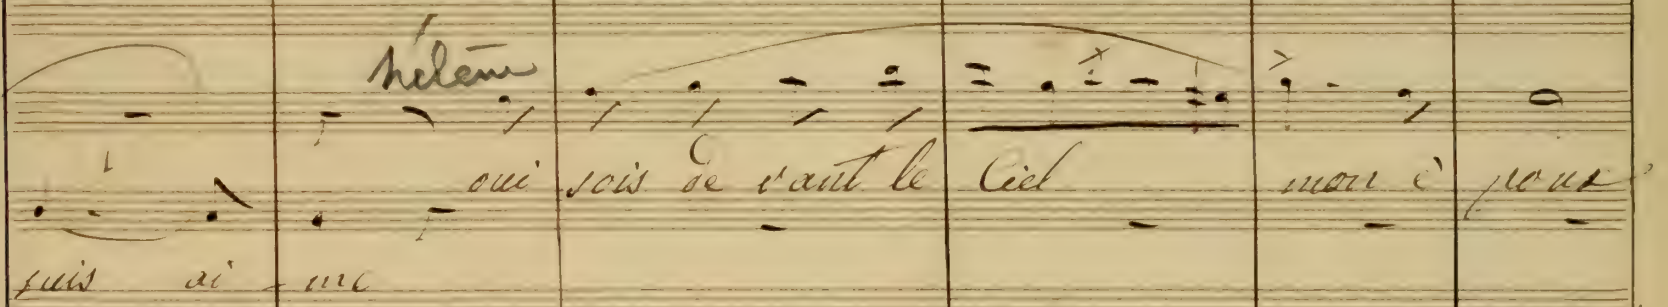 hélène
oui sois de vant le Ciel mon é poux
suis ai - mé